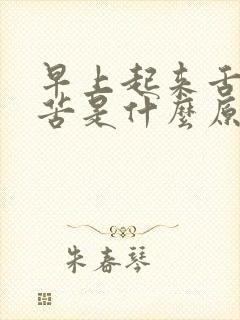 早上起来舌
苦是什麼原
朱春琴